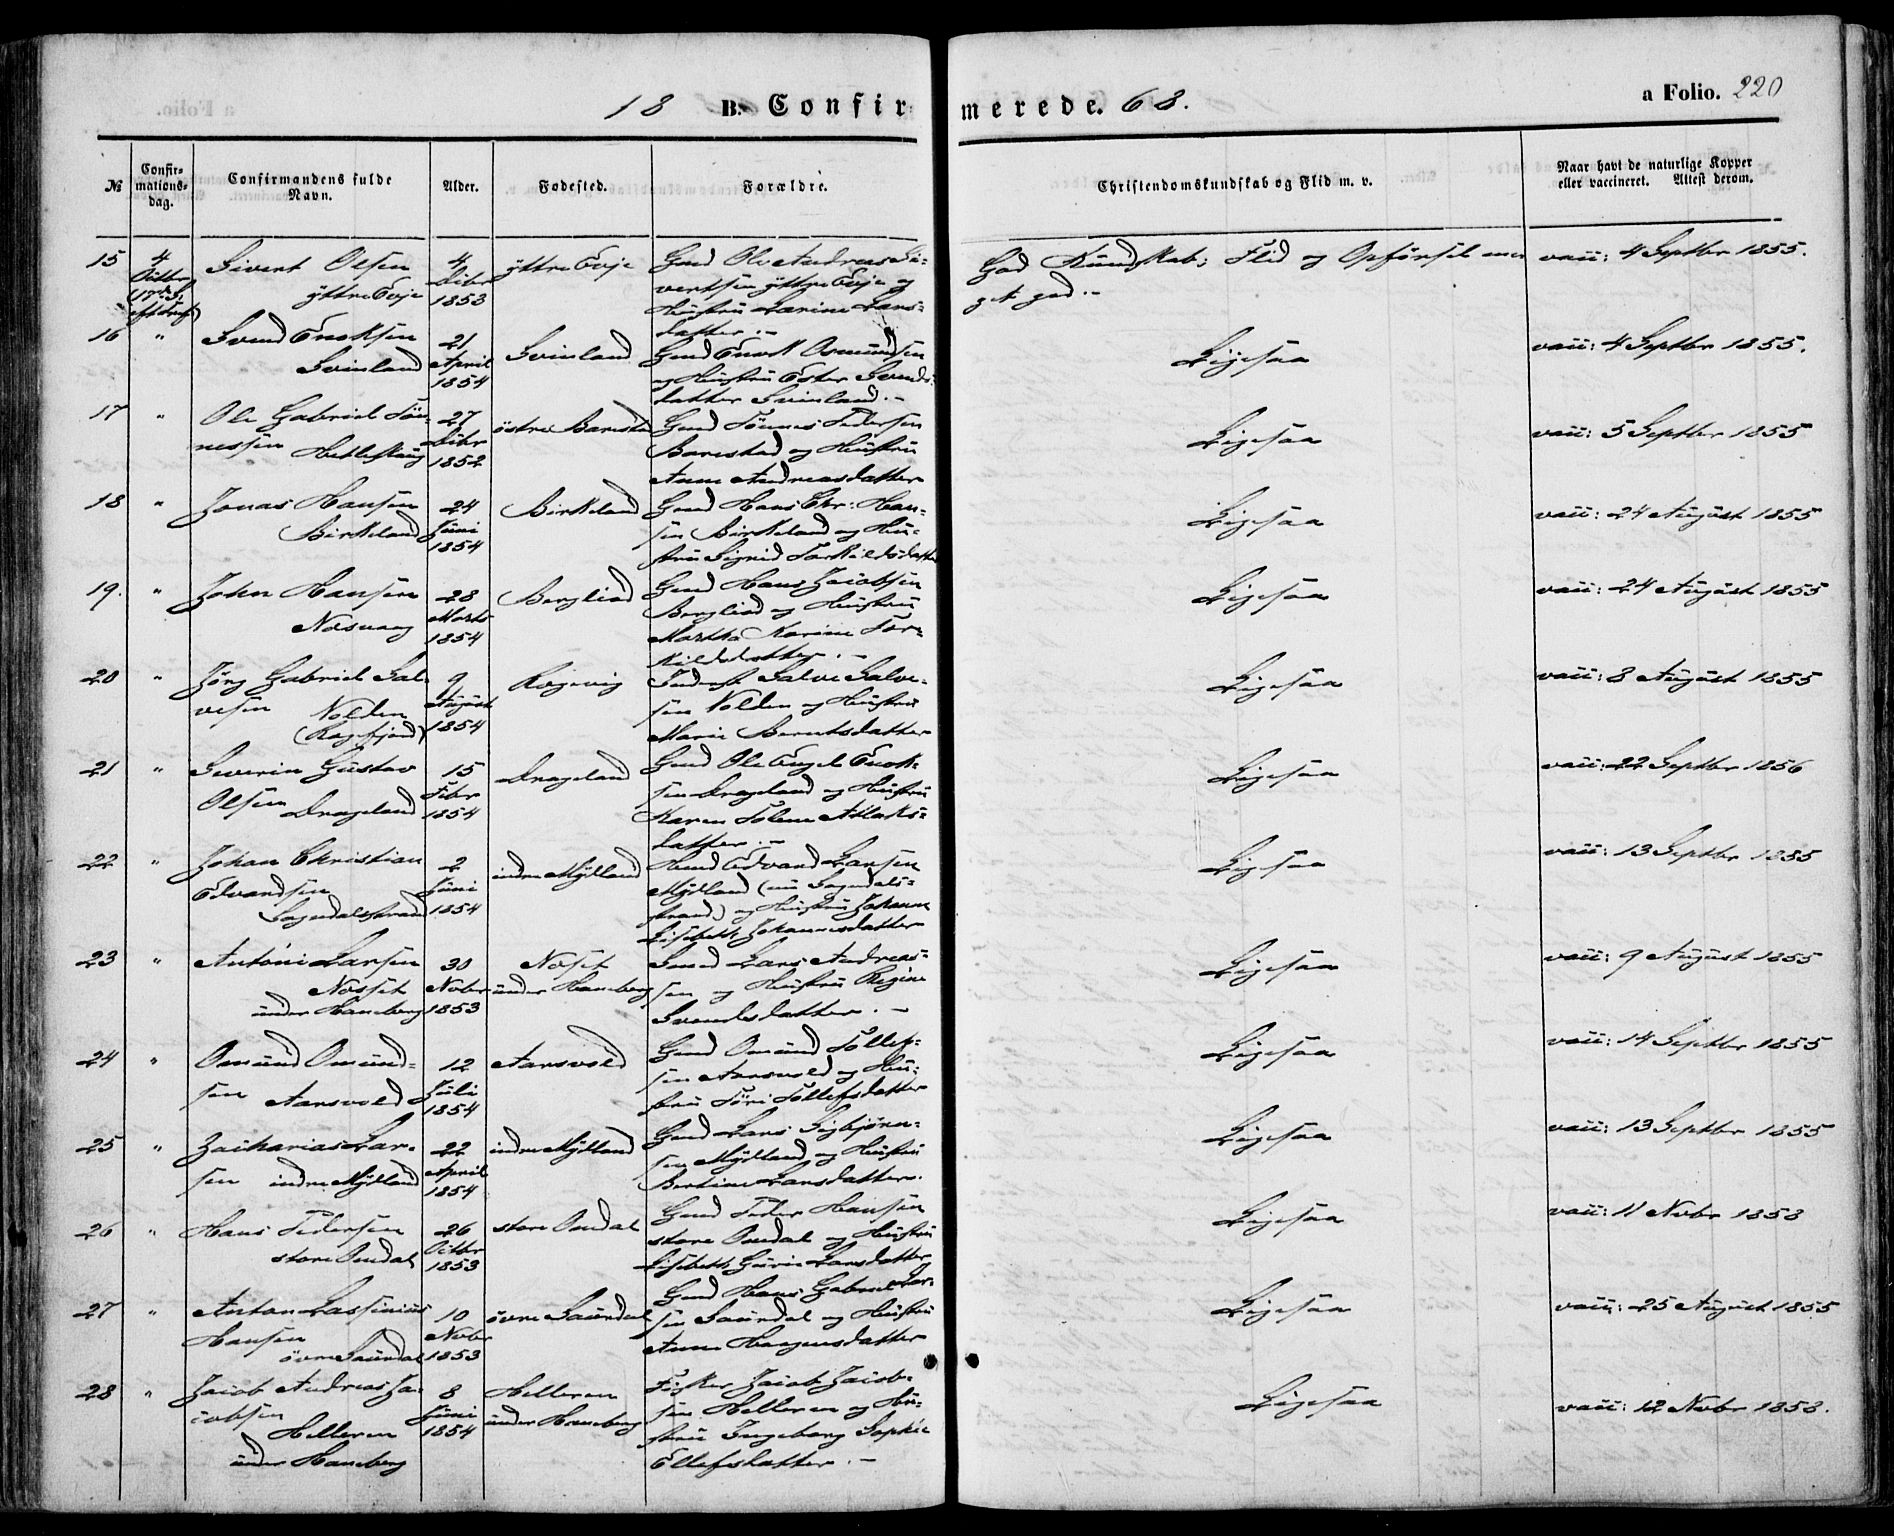 18 B. Confirmerede. 68.
a Folio. 220
№
Confirmationsdag.
Confirmandens fulde Navn.
Alder.
Fødested.
Forældre.
Christendomskundskab og Flid m. v.
Naar havt de naturlige Kopper eller vaccineret. Attest derom.
15
4 Octbr
Sivert Olsen
yttre Evje
4 Dcbr 1853
yttre Evje
Gmd Ole Andreas Si-
vertsen yttre Evje og
Hustru Larine Lars-
datter.-
God Kundskab; Flid og Opførsel me-
get god.-
vacc: 4 Septbr 1855.
16
"
Svend Enoksen
Svinland
21 April 1854
Svinland
Gmd Enok Osmundsen
og Hustru Ester Svends-
datter Svinland.-
Ligesaa
vacc: 4 Septbr 1855.
17
"
Ole Gabriel Tön-
nessen Hetleskug
27 Dcbr 1852
östre Barstad
Gmd Tönnes Pedersen
Barestad og Hustru
Anne Andreasdatter
Ligesaa
vacc: 5 Septbr 1855
18
"
Jonas Hansen
Birkeland
24 Juni 1854
Birkeland
Gmd Hans Chr: Han-
sen Birkeland og Hu-
stru Sigrid Torkildsdatter
Ligesaa
vacc: 24 August 1855
19.
"
John Hansen
Nosvaag
28 Marts 1854
Bergliod
Gmd Hans Jacobsen
Bergliod og Hustru
Martha Karine Tor-
kildsdatter.-
Ligesaa
vacc: 24 August 1855
20
"
Jörg Gabriel Sal-
vesen Nolden
(Ragefjord)
9 August 1854
Salve Salve-
sen Nolden og Hustru
Marie Berntsdatter
Ligesaa
vacc: 8 August 1855
21
"
Severin Gustav
Olsen Drageland
15 Febr 1854
Drageland
Gmd Ole Engel Enok-
sen Drageland og Hustru
Karen Tolene Atlaks-
datter.-
Ligesaa
vacc: 22 Septbr 1856
22
"
Johan Christian
Edvardsen
Sogndalsstrand
2 Juni 1854
indre Mydland
Edvard Larsen
Mydland (nu Sogndals-
strand) og Hustru Johanne
Lisebeth Johannesdatter
Ligesaa
vacc: 13 Septbr 1855
23
"
Antoni Larsen
Nosset
under Haneberg
30 Novbr 1853
Noset
under Haneberg
Lars Andreas-
sen og Hustru Regine
Svendsdatter.-
Ligesaa
vacc: 9 August 1855
24
"
Omund Omund-
sen Aarsvold
12 Juli 1854
Aarsvold
Gmd Omund Tollef-
sen Aarsvold og Hu-
stru Töri Tollefsdatter
Ligesaa
vacc: 14 Septbr 1855
25
"
Zacharias Lar-
sen indre Mydland
22 April 1854
indre Mydland
Gmd Lars Sigbjørn-
sen Mydland og Hustru
Bertine Larsdatter.
Ligesaa
vacc: 13 Septbr 1855
26
"
Hans Pedersen
store Omdal
26 Octbr 1853
store Omdal
Gmd Peder Hansen
store Omdal og Hustru
Lisebeth Gurine Larsdatter
Ligesaa
vacc: 11 Novbr 1858
27
"
Anton Lassenius
Hansen
övre Saurdal
10 Novbr 1853
övre Saurdal
Gmd Hans Gabriel Lar-
sen Saurdal og Hustru
Anne Haagensdatter
Ligesaa
vacc: 25 August 1855
28
"
Jacob Andreas Ja-
cobsen
Helleren
under Haneberg
8 Juni 1854
Helleren
under Haneberg
Fisker Jacob Jacob-
sen Helleren og Hu-
stru Ingeborg Sophie
Ellefsdatter.-
Ligesaa
vacc: 12 Novbr 1858.